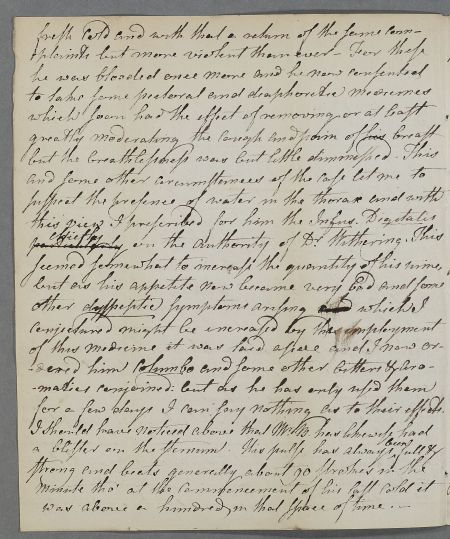 fresh Cold and with that a return of the same com-
-plaints but more violent than ever - For these
he was blooded once more and he now consented
to take some pectoral and diaphoretic medicines
which soon had the effect of removing or at least
greatly moderating the cough and pain of his breast
but the breathlessness was but little diminished. This
and some other circumstances of the case led me to
suspect the presence of water in the thorax and with
this view I prescribed for him the Infus. Digitalis
chiefly on the Authority of Dr Withering. This
seemed somewhat to increase the quantity of his urine,
but as his appetite now became very bad and some
other dyspeptic symptoms arising which I
conjectured might be increased by the employment
of this medicine it was laid aside and I now or-
-dered him Columbo and some other bitters & Aro-
-matics conjoined: but as he has only used them
for a few days I can say nothing as to their effects.
I should have noticed above that Mr has likewise had
a blister on the sternum. His pulse has always been full &
strong and beats generally about 90 strokes in the
minute tho' at the commencement of his last cold it
was above a hundred in that space of time. —